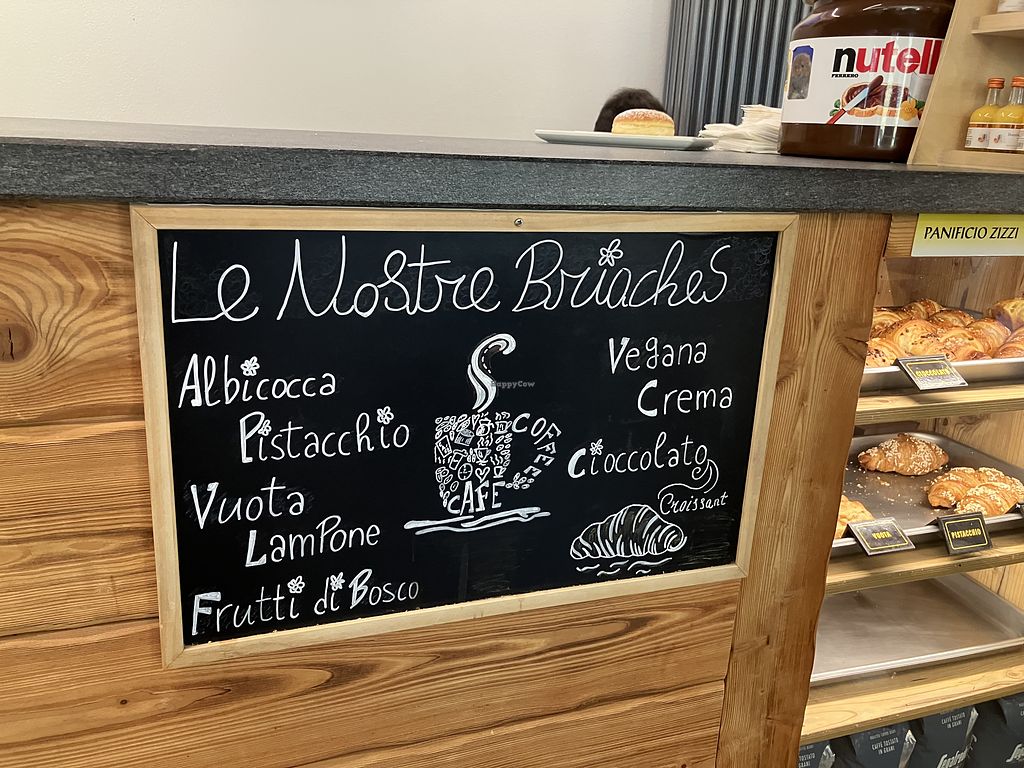 Le Nostre Briaches
Albicocca
Pistacchio
Vuota
Lampone
Frutti di Bosco
Vegana
Crema
Cioccolato
Croissant
COFFEE
CAFE
HappyCow
nutell
FERRERO
PANIFICIO ZIZZI
CIOCCOLATO
VUOTA
PISTACCHIO
CAFFÈ TOSTATO
IN GRANI